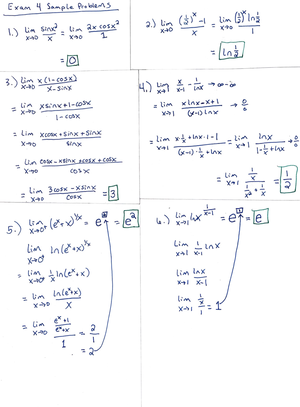 Exam 4 Sample Problems
1.) lim x→0 sinx²/x = lim x→0 2x cosx²/1
= 0
2.) lim x→0 ((1/2)^x - 1)/x = lim x→0 (1/2)^x ln 1/2 / 1
= ln 1/2
3.) lim x→0 x(1-cosx)/(x-sinx)
= lim x→0 (xsinx+1-cosx)/(1-cosx)
= lim x→0 (xcosx+sinx+sinx)/sinx
= lim x→0 (cosx-xsinx+cosx+cosx)/cosx
= lim x→0 (3cosx-xsinx)/cosx = 3
4.) lim x→1 x/(x-1) - 1/lnx → ∞-∞
= lim x→1 (xlnx-x+1)/((x-1)lnx) → 0/0
= lim x→1 (x·1/x+lnx·1-1)/((x-1)·1/x+lnx) = lim x→1 lnx/(1-1/x+lnx) → 0/0
= lim x→1 (1/x)/(1/x²+1/x) = 1/2
5.) lim x→0⁺ (e^x+x)^(1/x) = e^2 = e²
lim x→0⁺ ln(e^x+x)^(1/x)
= lim x→0⁺ 1/x ln(e^x+x)
= lim x→0 ln(e^x+x)/x
= lim x→0 ((e^x+1)/(e^x+x))/1 = 2/1
= 2
6.) lim x→1 x^(1/(x-1)) = e^1 = e
lim x→1 1/(x-1) lnx
lim x→1 lnx/(x-1)
lim x→1 (1/x)/1 = 1